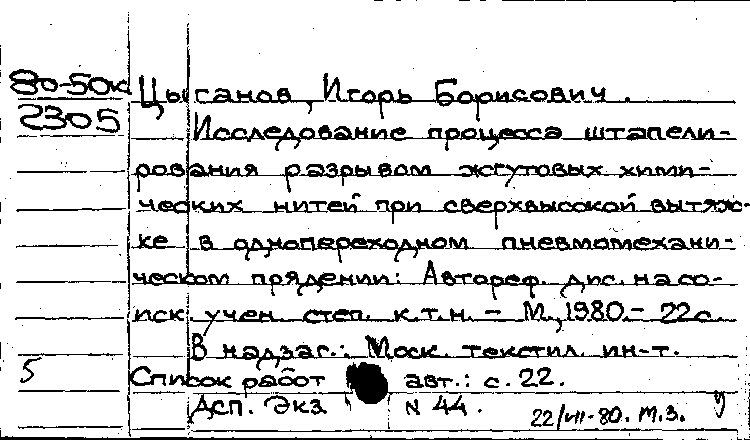 80-50к Цыганов, Игорь Борисович.
2305
Исследование процесса штапели-
рования разрывом жгутовых хими-
ческих нитей при сверхвысокой вытяж-
ке в однопереходном пневмомехани-
ческом прядении: Автореф. дис. на со-
иск. учен. степ. к.т.н. – М., 1980. – 22 с.
В надзаг.: Моск. текстил. ин-т.
5 Список работ авт.: с. 22.
Дсп. Экз N 44. 22/VII-80. М.З.